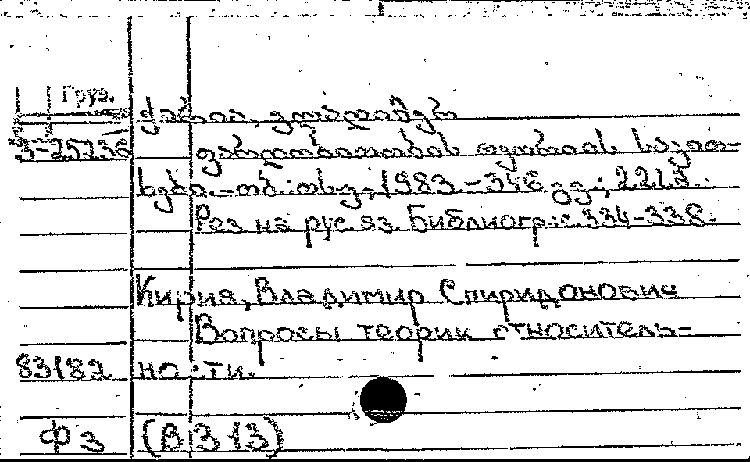 Груз.
ქირია, ვლადიმერ
3-25236 ფარდობითობის თეორიის საკით-
ხები. -თბ.: თსუ, 1983 -346 გვ.; 22 სმ.
Рез на рус яз. Библиогр.: с. 334-338.
Кирия, Владимир Спиридонович
Вопросы теории относитель-
83182 ности.
Фз (В313)